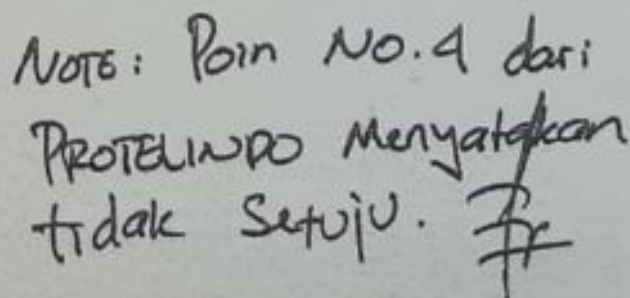 NOTE: Poin NO.4 dari
PROTELINDO Menyatakan
tidak Setuju.